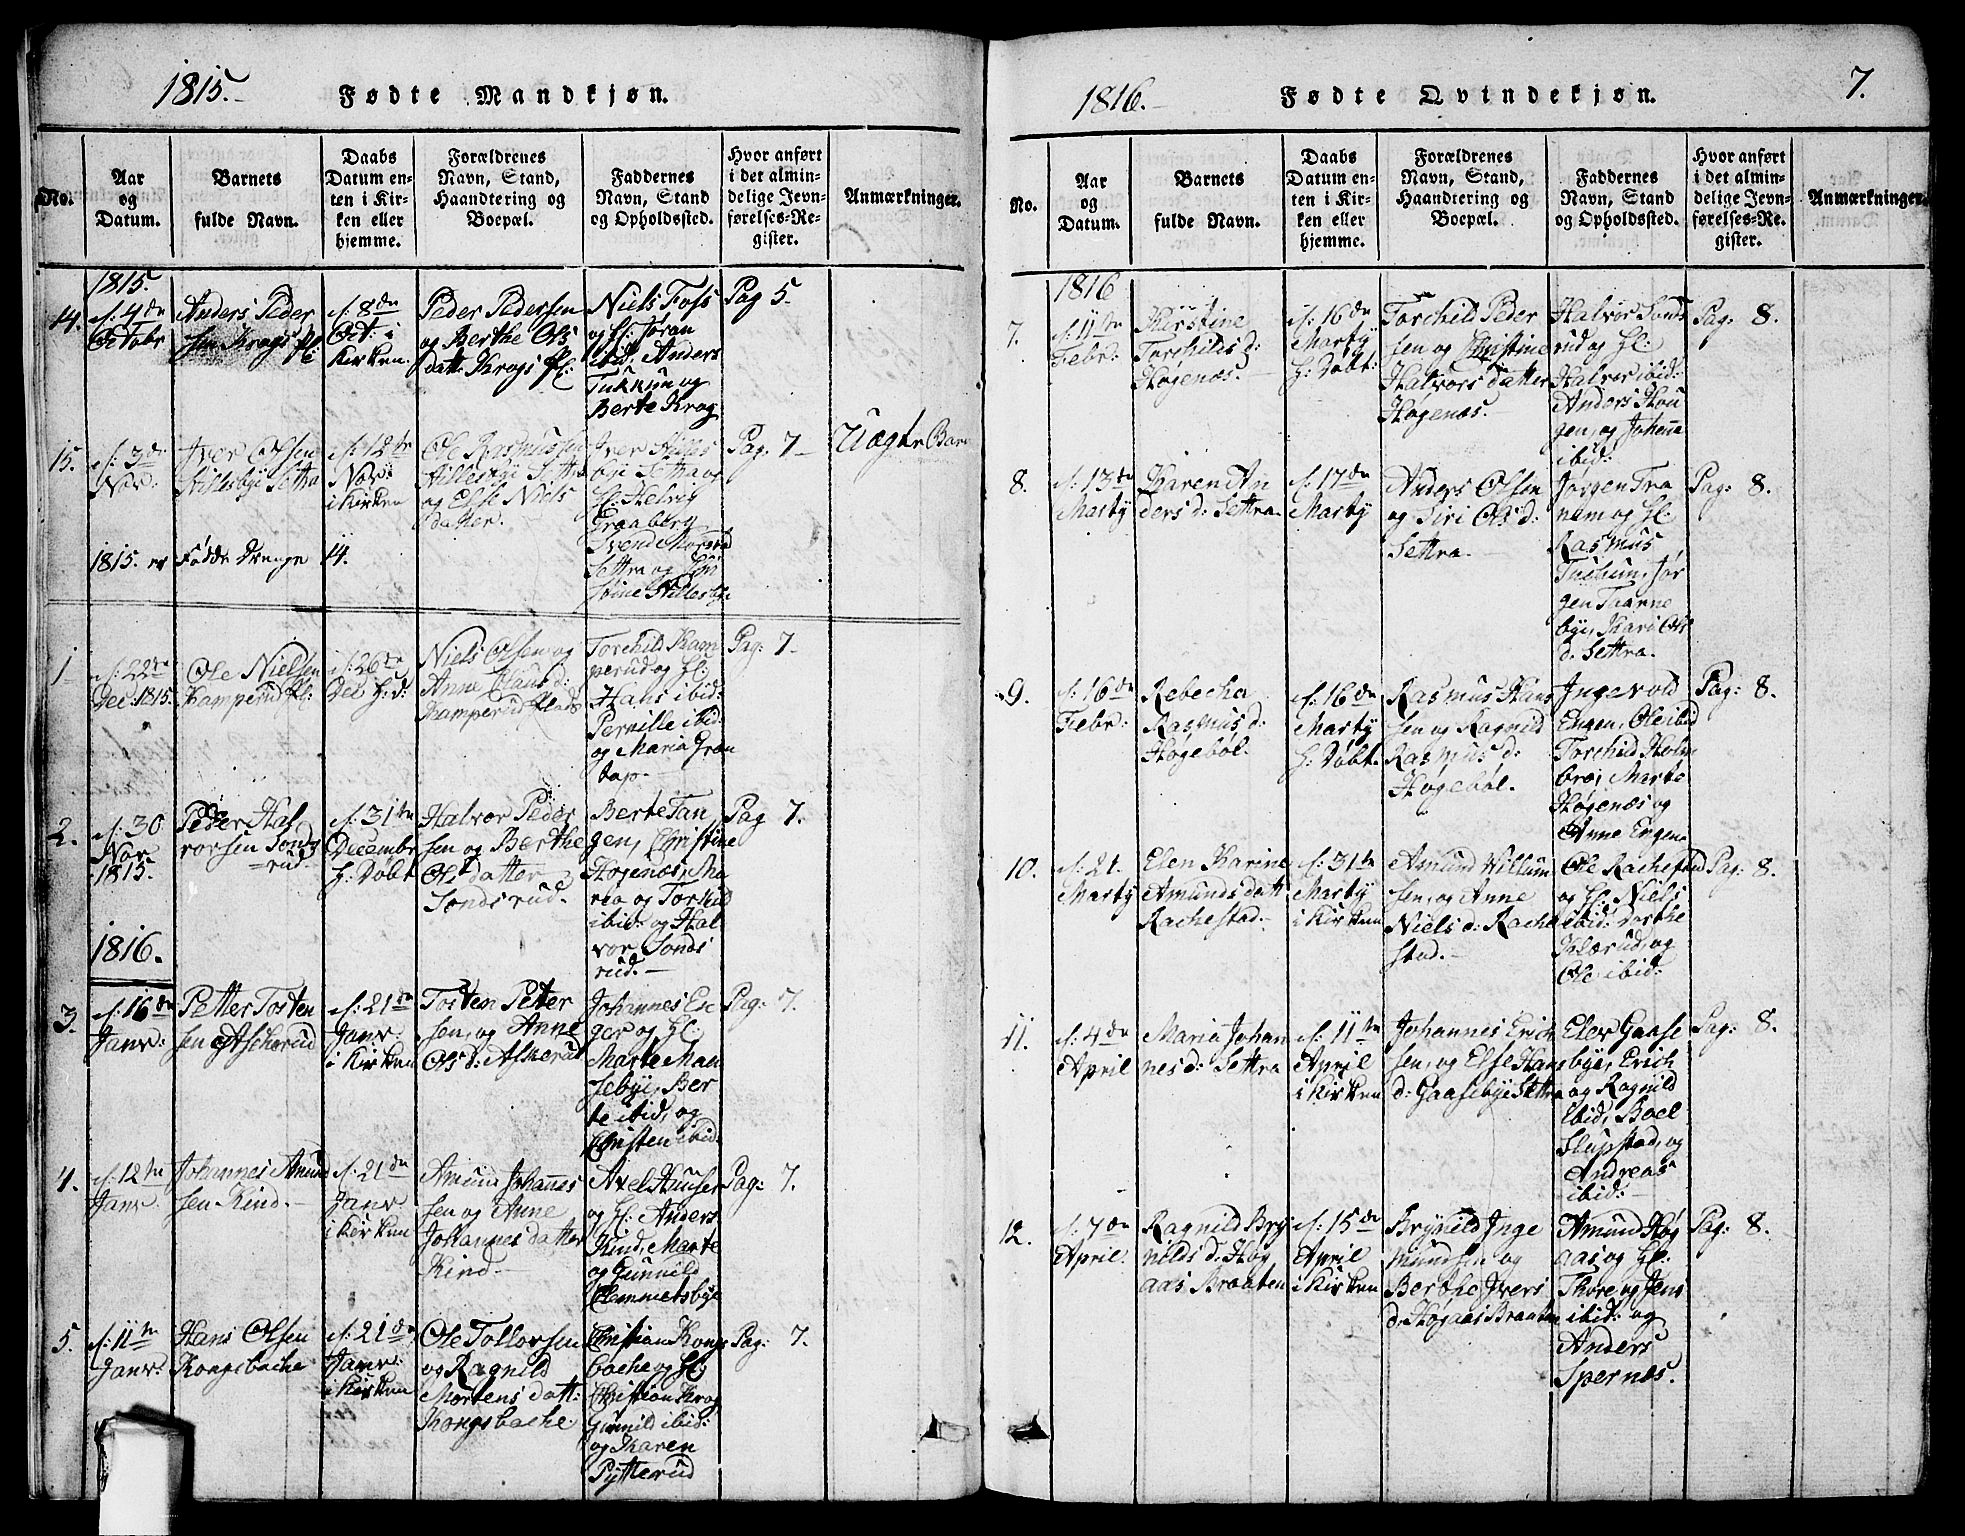 1815.
Fødte Mandkjøn.
No.
Aar
og
Datum.
Barnets
fulde Navn.
Daabs
Datum en-
ten i Kir-
ken eller
hjemme.
Forældrenes
Navn, Stand,
Haandtering og
Boepæl.
Faddernes
Navn, Stand
og Opholdssted.
Hvor anført
i det almin-
delige Jevn-
førelses-Re-
gister.
Anmærkninger.
1815.
14.
d: 4de
Octobr
Anders Peder
sen Krogs pl:
d: 8de
Oct: i
Kirken
Peder Pedersen
og Berthe Ols
datt: Krogs pl:
Niels Foss
og H: Jøran
ibd. Anders
Tukkun og
Berte Krog
Pag 5.
15.
d: 3de
Nov:
Iver Olsen
Hillesbye Settra
d: 12te
Nov:
i Kirken
Ole Rasmussen
Hillesbye Settra
og Else Niels
datter.
Iver Hilles
bye Settra og
H: Helvig
Graaberg
Svend Morstad
Settra og
Hillesbye
Pag: 7
Uægte Barn
1815. er Fødde Drenge 14.
1
d: 22de
Dec: 1815.
Ole Nielsen
Kamperud pl:
d: 26te
Dec H: d:
Niels Olsen og
Anne Hans d:
Kamperud plads
Torchild Kam
perud og H:
Hans ibid:
Pernille ibid
og Maria Grøn
tap.
Pag: 7
2.
d: 30
Nov.
1815.
Peder Hal
vorsen Sonds
rud.
d: 31te
Decembr
H: Døbt
Halvor Peder
sen og Berthe
Ols datter
Sondsrud.
Berte Tan
gen, Christine
Høgenæs, Ma
rea og Torkild
ibid: og Hal
vor Sonds
rud.
Pag 7.
1816.
3.
d: 16de
Janv:
Petter Torsten
sen Askerud
d: 21de
Janv
i Kirken
Torsten Petter
sen, og Anne
Ols d: Askerud
Johannes Ee
ger og H:
Marte Man
sebye, Ber
te ibid, og
Christen ibid.
Pag: 7.
4.
d: 12te
Janv.
Johannes Amund
sen Kind.
d: 21de
Janv
i Kirken
Amund Johannes
sen og Anne
Johannes datter
Kind
Axel Huuser
og H: Anders
Kind, Marte
og Gunnild
Clemmetsbye
Pag: 7.
5.
d: 11te
Janv.
Hans Olsen
Kongsbache
d: 21de
Janv:
i Kirken
Ole Tollorsen
og Ragnild
Mortens datt:
Kongsbache
Christian Kongs
bache og H:
Christian Krog
Gunnild ibid:
og Karen
Pytterud
Pag: 7.
1816.
Fødte Qvindekjøn.
7.
No.
Aar
og
Datum.
Barnets
fulde Navn.
Daabs
Datum en-
ten i Kir-
ken eller
hjemme.
Forældrenes
Navn, Stand,
Haandtering og
Boepæl.
Faddernes
Navn, Stand
og Opholdssted.
Hvor anført
i det almin-
delige Jevn-
førelses-Re-
gister.
Anmærkninger.
1816
7.
d: 11te
Febr:
Kirstine
Torchilds d:
Høgenæs.
d: 16de
Marty
H: Døbt:
Torchild Peder
sen og Christine
Halvors datter
Høgenæs.
Halvor Sonds
rud og H:
Halvor ibid:
Anders Hou
gen, og Johanna
ibid:
Pag: 8.
8.
d: 13de
Marty
Karen An
ders d: Settra
d: 17de
Marty
Anders Olsen
og Siri Ols d:
Settra.
Jørgen Tra
nem og H:
Rasmus
Jør
gen Taarne
bye, Kari Ols
d. Settra.
Pag: 8.
9.
d: 16de
Febr:
Rebecha
Rasmus d:
Høgebøl.
d: 16de
Marty
H: Døbt.
Rasmus Hans
sen og Ragnild
Rasmus d:
Høgebøl.
Ingevold
Engen, Ole ibid
Torchild Hols
broe, Marte
Høgenæs og
Anne Engen
Pag: 8.
10.
d: 21.
Marty
Elen Karine
Amunds datt
Rachestad.
d: 31te
Marty
i Kirken
Amund Willum
sen, og Anne
Niels d: Rache
stad.
Ole Rachestad
og H: Niels
ibid: Dorthe
Kolærud, og
Ole ibid:
Pag: 8.
11.
d: 4de
April
Maria Johan
nes d: Settra
d: 11te
April
i Kirken
Johannes Erich
sen, og Else Hans
d: Gaasebye Settra
Elev Gaase
bye, Erich
og Ragnild
ibid, Boel
Slupstad, og
Andreas
ibid:
Pag: 8.
12.
d: 7de
April.
Ragnild Bry
nilds d: Høg
aas Braaten
d: 15de
April
i Kirken
Brynild Inge
mundsen og
Berthe Ivers
d: Høgaas Braaten
Amund Høg
aas og H:
Thore og Jens
ibid: og
Anders
Spernæs.
Pag: 8.